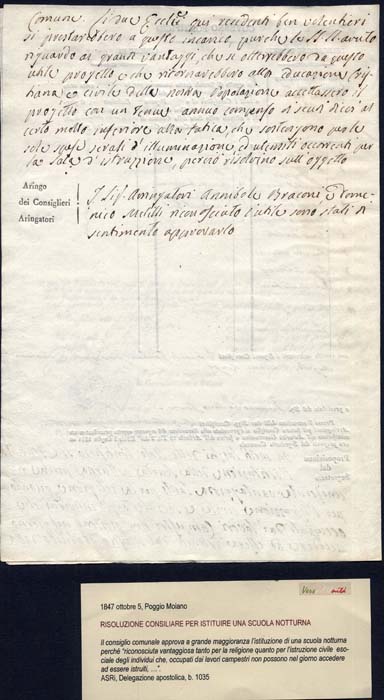 Comune. Li due Eccl.ci qui residenti ben volentieri
si presterebbero a questo incarico, purchè le SS. LL. avuto
riguardo ai grandi vantaggi, che si otterrebbero da questo
utile progetto e che ritornarebbero alla educazione Cri-
stiana e civile della nostra Popolazione accettassero il
progetto con un tenue annuo compenso di scudi dieci al
certo molto inferiore alla fatica, che sostengono per le
sole spese serali d'illuminazione, d'utensili occorrenti per
la Sala d'istruzione, perciò risolvino sull'oggetto
Aringo
dei Consiglieri
Aringatori
I Sig.i Arringatori Annibale Bracone e Dome-
nico Melilli riconosciuto l'utile sono stati di
sentimento approvarlo
1847 ottobre 5, Poggio Moiano
RISOLUZIONE CONSILIARE PER ISTITUIRE UNA SCUOLA NOTTURNA
Il consiglio comunale approva a grande maggioranza l'istituzione di una scuola notturna
perché "riconosciuta vantaggiosa tanto per la religione quanto per l'istruzione civile eso-
ciale degli individui che, occupati dai lavori campestri non possono nel giorno accedere
ad essere istruiti, …".
ASRi, Delegazione apostolica, b. 1035